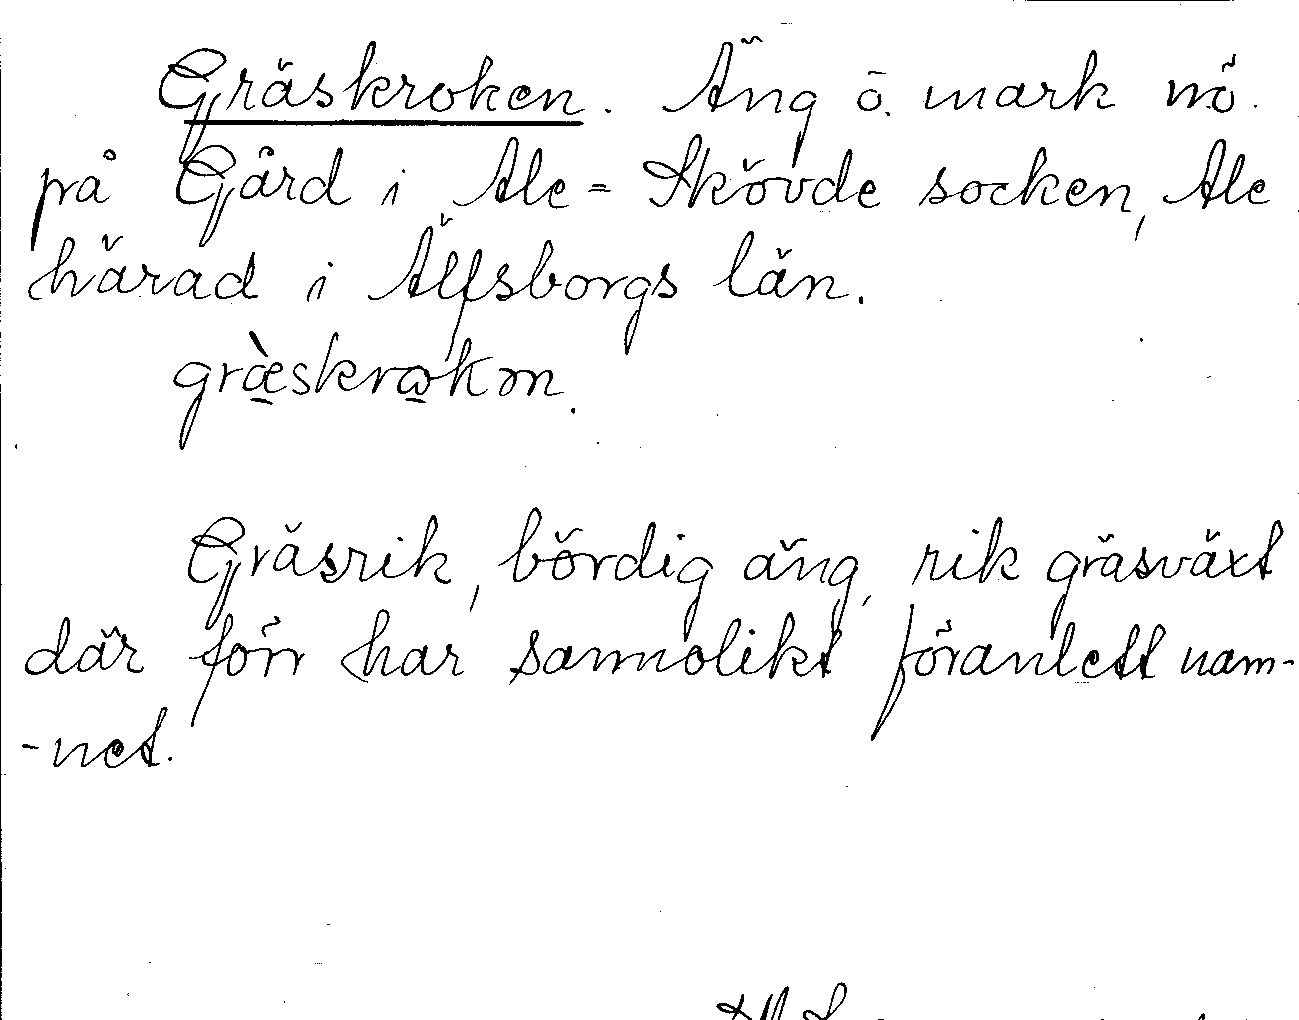 Gräskroken. Äng ö. mark nö.
på Gård i Ale-Skövde socken, Ale
härad i Älfsborgs län.
Gräsrik, bördig äng, rik gräsväxt
där förr har sannolikt föranlett nam-
-net.